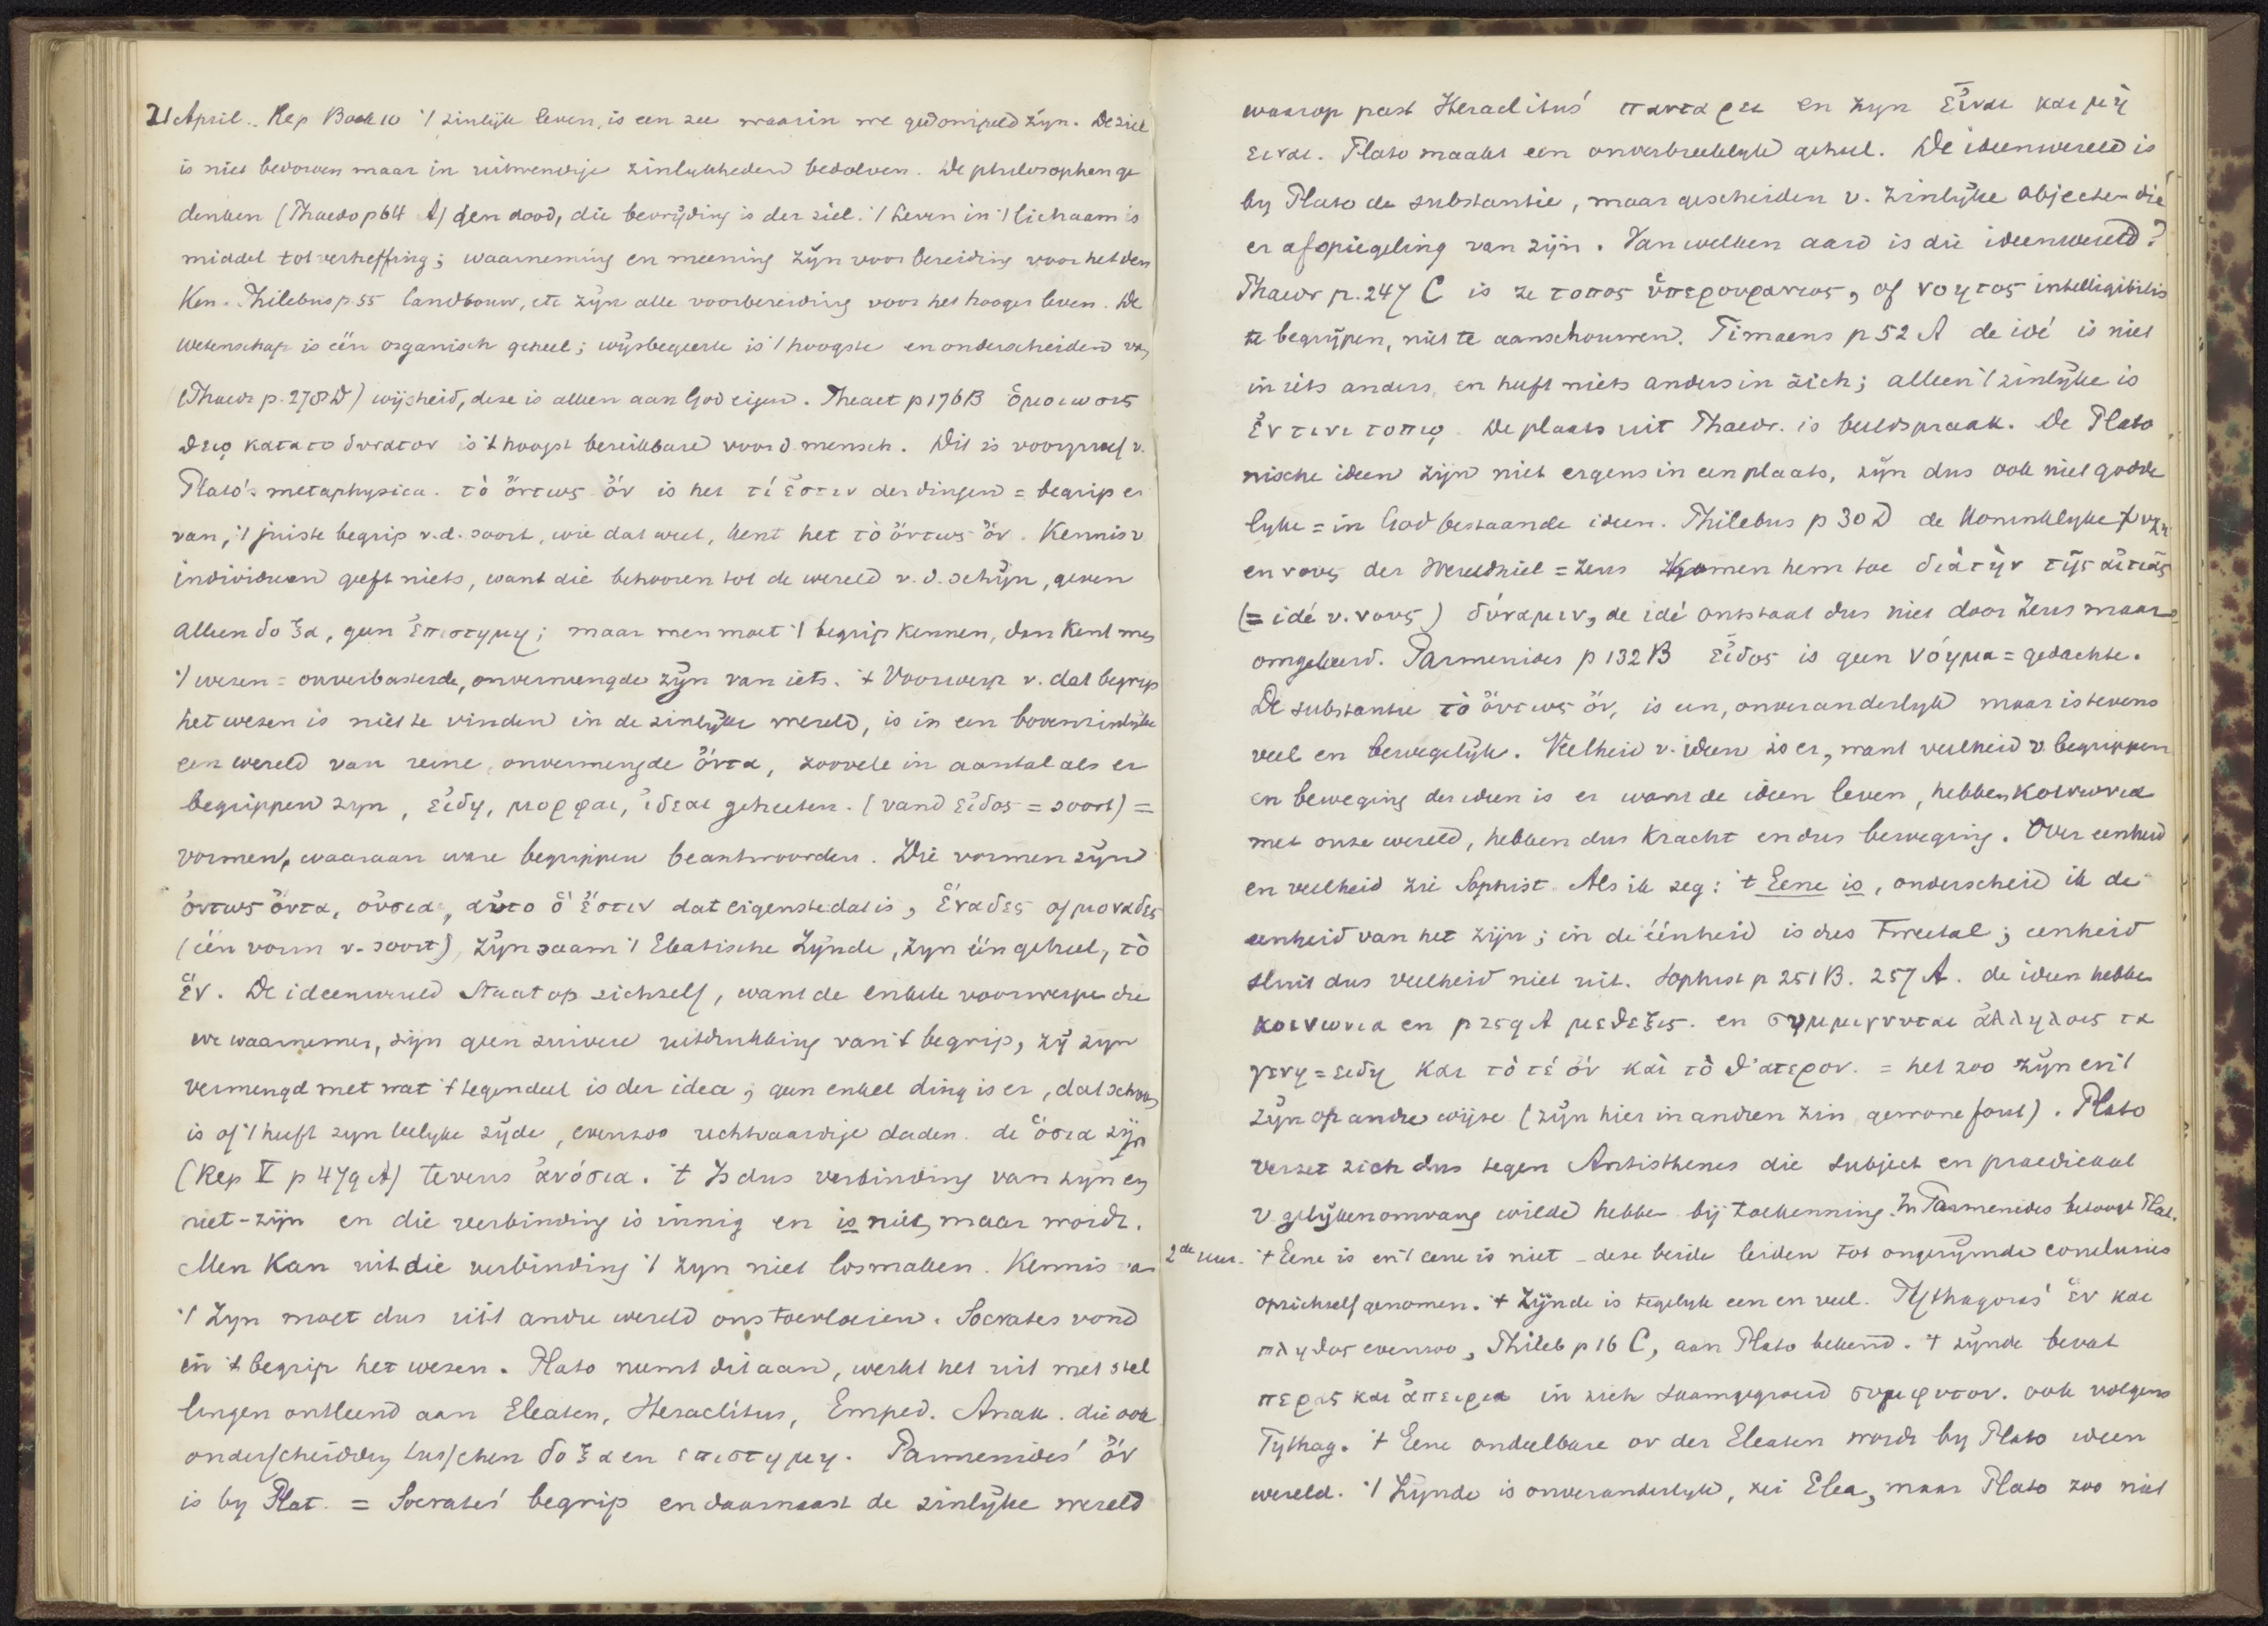 21 April. Rep Boek 10 't zinlijk leven, is een zee waarin we gedompeld zijn. De ziel
is niet bedorven maar in uitwendige zinlykheden bedolven. De philosophen ge
denken (Phaedo p 64 A) den dood, die bevrijding is der ziel. 't Leven in 't lichaam is
middel tot verheffing; waarneming en meening zijn voorbereiding voor het den
ken. Philebus p. 55 landbouw, etc zijn alle voorbereiding voor het hooger leven. De
wetenschap is één organisch geheel; wijsbegeerte is 't hoogste en onderscheiden van
(Phaedr p. 278 D) wijsheid, deze is alleen aan God eigen. Theaet p 176 B ὁμοιωσις
θεῳ κατα το δυνατον is 't hoogst bereikbare voor d. mensch. Dit is voorproef v.
Plato's metaphysica. τὸ ὄντως ὄν is het τί ἔστιν der dingen = begrip er
van, 't juiste begrip v.d. soort, wie dat weet, kent het τὸ ὄντως ὄν. Kennis v
individuen geeft niets, want die behooren tot de wereld v. d. schijn, geven
alleen δοξα, geen ἐπιστημη; maar men moet 't begrip kennen, dan kent men
't wezen = onverbasterde, onvermengde zijn van iets. 't Voorwerp v. dat begrip
het wezen is niet te vinden in de zinlijke wereld, is in een bovenzinlijke
een wereld van reine, onvermengde ὄντα, zoovele in aantal als er
begrippen zyn, εἰδη, μορφαι, ἰδεαι geheeten. (vand εἰδος = soort) =
vormen, waaraan ware begrippen beantwoorden. Die vormen zijn
ὀντως ὄντα, οὐσια, αὐτο ὅ ἔστιν dat eigenste dat is, ἑναδες of μοναδες
(één vorm v. soort), zijn saam 't Eleatische Zijnde, zyn één geheel, τὸ
ἕν. De ideenwereld staat op zichzelf, want de enkele voorwerpen die
we waarnemen, zijn geen zuivere uitdrukking van 't begrip, zij zyn
vermengd met wat 't tegendeel is der idea; geen enkel ding is er, dat schoon
is of 't heeft zyn leelyke zijde, evenzoo rechtvaardige daden. de ὅσια zijn
(Rep V p 479 A) tevens ἀνόσια. 't Is dus verbinding van zijn en
niet-zijn en die verbinding is innig en is niet, maar wordt.
Men kan uit die verbinding 't zyn niet losmaken. Kennis van
't Zyn moet dus uit andre wereld ons toevloeien. Socrates vond
in 't begrip het wezen. Plato neemt dit aan, werkt het uit met stel
lingen ontleend aan Eleaten, Heraclitus, Emped. Anax. die ook
onderscheidden tusschen δοξα en επιστημη. Parmenides' ὄν
is by Plat. = Socrates' begrip en daarnaast de zinlijke wereld
waarop past Heraclitus' παντα ρει en zyn εἶναι και μὴ
ειναι. Plato maakt een onverbreeklyk geheel. De ideenwereld is
by Plato de substantie, maar gescheiden v. zinlijke objecten die
er afspiegeling van zijn. Van welken aard is die ideenwereld?
Phaedr p. 247 C is ze τοπος ὑπερουρανιος, of νοητος intelligibilis
te begrijpen, niet te aanschouwen. Timaeus p 52 A de idé is niet
in iets anders, en heeft niets anders in zich; alleen 't zinlijke is
ἐν τινι τοπῳ. De plaats uit Phaedr. is beeldspraak. De Plato
nische ideen zijn niet ergens in een plaats, zijn dus ook niet godde
lyke = in God bestaande ideen. Philebus p 30 D de koninklyke ψυχη
en νους der Wereldziel = Zeus komen hem toe διὰ τὴν τῆς αἰτιας
(= idé v. νους) δύναμιν, de idé ontstaat dus niet door Zeus maar
omgekeerd. Parmenides p 132 B εἶδος is geen νόημα = gedachte.
De substantie τὸ ὄντως ὄν, is een, onveranderlyk maar is tevens
veel en bewegelijk. Veelheid v. ideen is er, want veelheid v begrippen
en beweging der ideen is er want de ideen leven, hebben κοινωνια
met onze wereld, hebben dus kracht en dus beweging. Over eenheid
en veelheid zie Sophist. Als ik zeg: 't Eene is, onderscheid ik de
eenheid van het zijn; in de éénheid is dus tweetal; eenheid
sluit dus veelheid niet uit. Sophist p 251 B. 257 A. de ideen hebben
κοινωνια en p 259 A μεθεξις. en συμμιγνυται ἀλληλοις τα
γενη = ειδη και τὸ τέ ὄν καὶ τὸ θ'ατερον. = het zoo zijn en 't
zijn op andre wijze (zijn hier in andren zin, gewone fout). Plato
verzet zich dus tegen Antisthenes die subject en praedicaat
v gelijken omvang wilde hebben bij toekenning. In Parmenides betoogt Plat.
2de uur. 't Eene is en 't eene is niet - deze beide leiden tot ongerijmde conclusies
op zichzelf genomen. 't Zijnde is tegelyk een en veel. Pythagoras' ἕν και
πληθος evenzoo, Phileb p 16 C, aan Plato bekend. 't zijnde bevat
περας και ἀπειρια in zich saamgegroeid συμφυτον. ook volgens
Pythag. 't Eene ondeelbare ον der Eleaten wordt by Plato ideen
wereld. 't Zijnde is onveranderlyk, zei Elea, maar Plato zoo niet